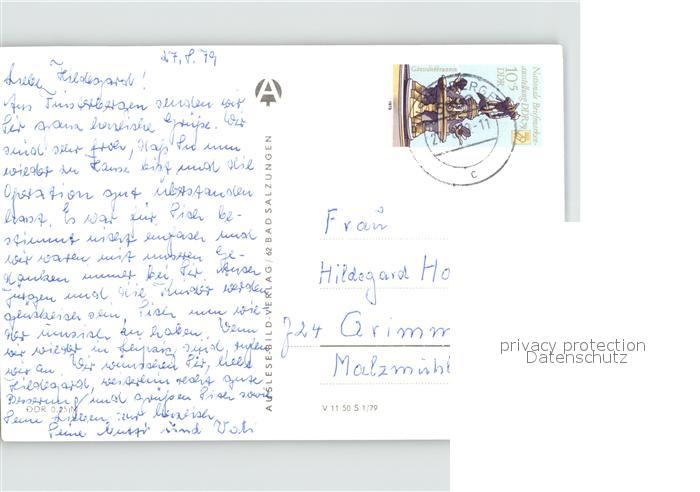 27.8.79
Liebe Hildegard!
Aus Finsterbergen senden wir
Dir ganz herzliche Grüße. Wir
sind sehr froh, daß Du nun
wieder zu Hause bist und die
Operation gut überstanden
hast. Es war für Dich be-
stimmt nicht einfach und
wir waren mit unseren Ge-
danken immer bei Dir. Auch
Jürgen und die Kinder werden
sein, Dich nun wie-
der um sich zu haben. Wenn
wir wieder in Leipzig sind rufen
wir an. Wir wünschen Dir, liebe
Hildegard, weiterhin recht gute
Besserung und grüßen Dich sowie
Deine Lieben herzlich
Deine Mutti und Vati
DDR 0,25 M
AUSLESE-BILD-VERLAG / 62 BAD SALZUNGEN
V 11 50 S 1/79
Gänsediebbrunnen
Nationale Briefmarken-
ausstellung DDR 79
10+5
DDR
C
Frau
Hildegard Ho
724 Grimm
Malzmühl
privacy protection
Datenschutz